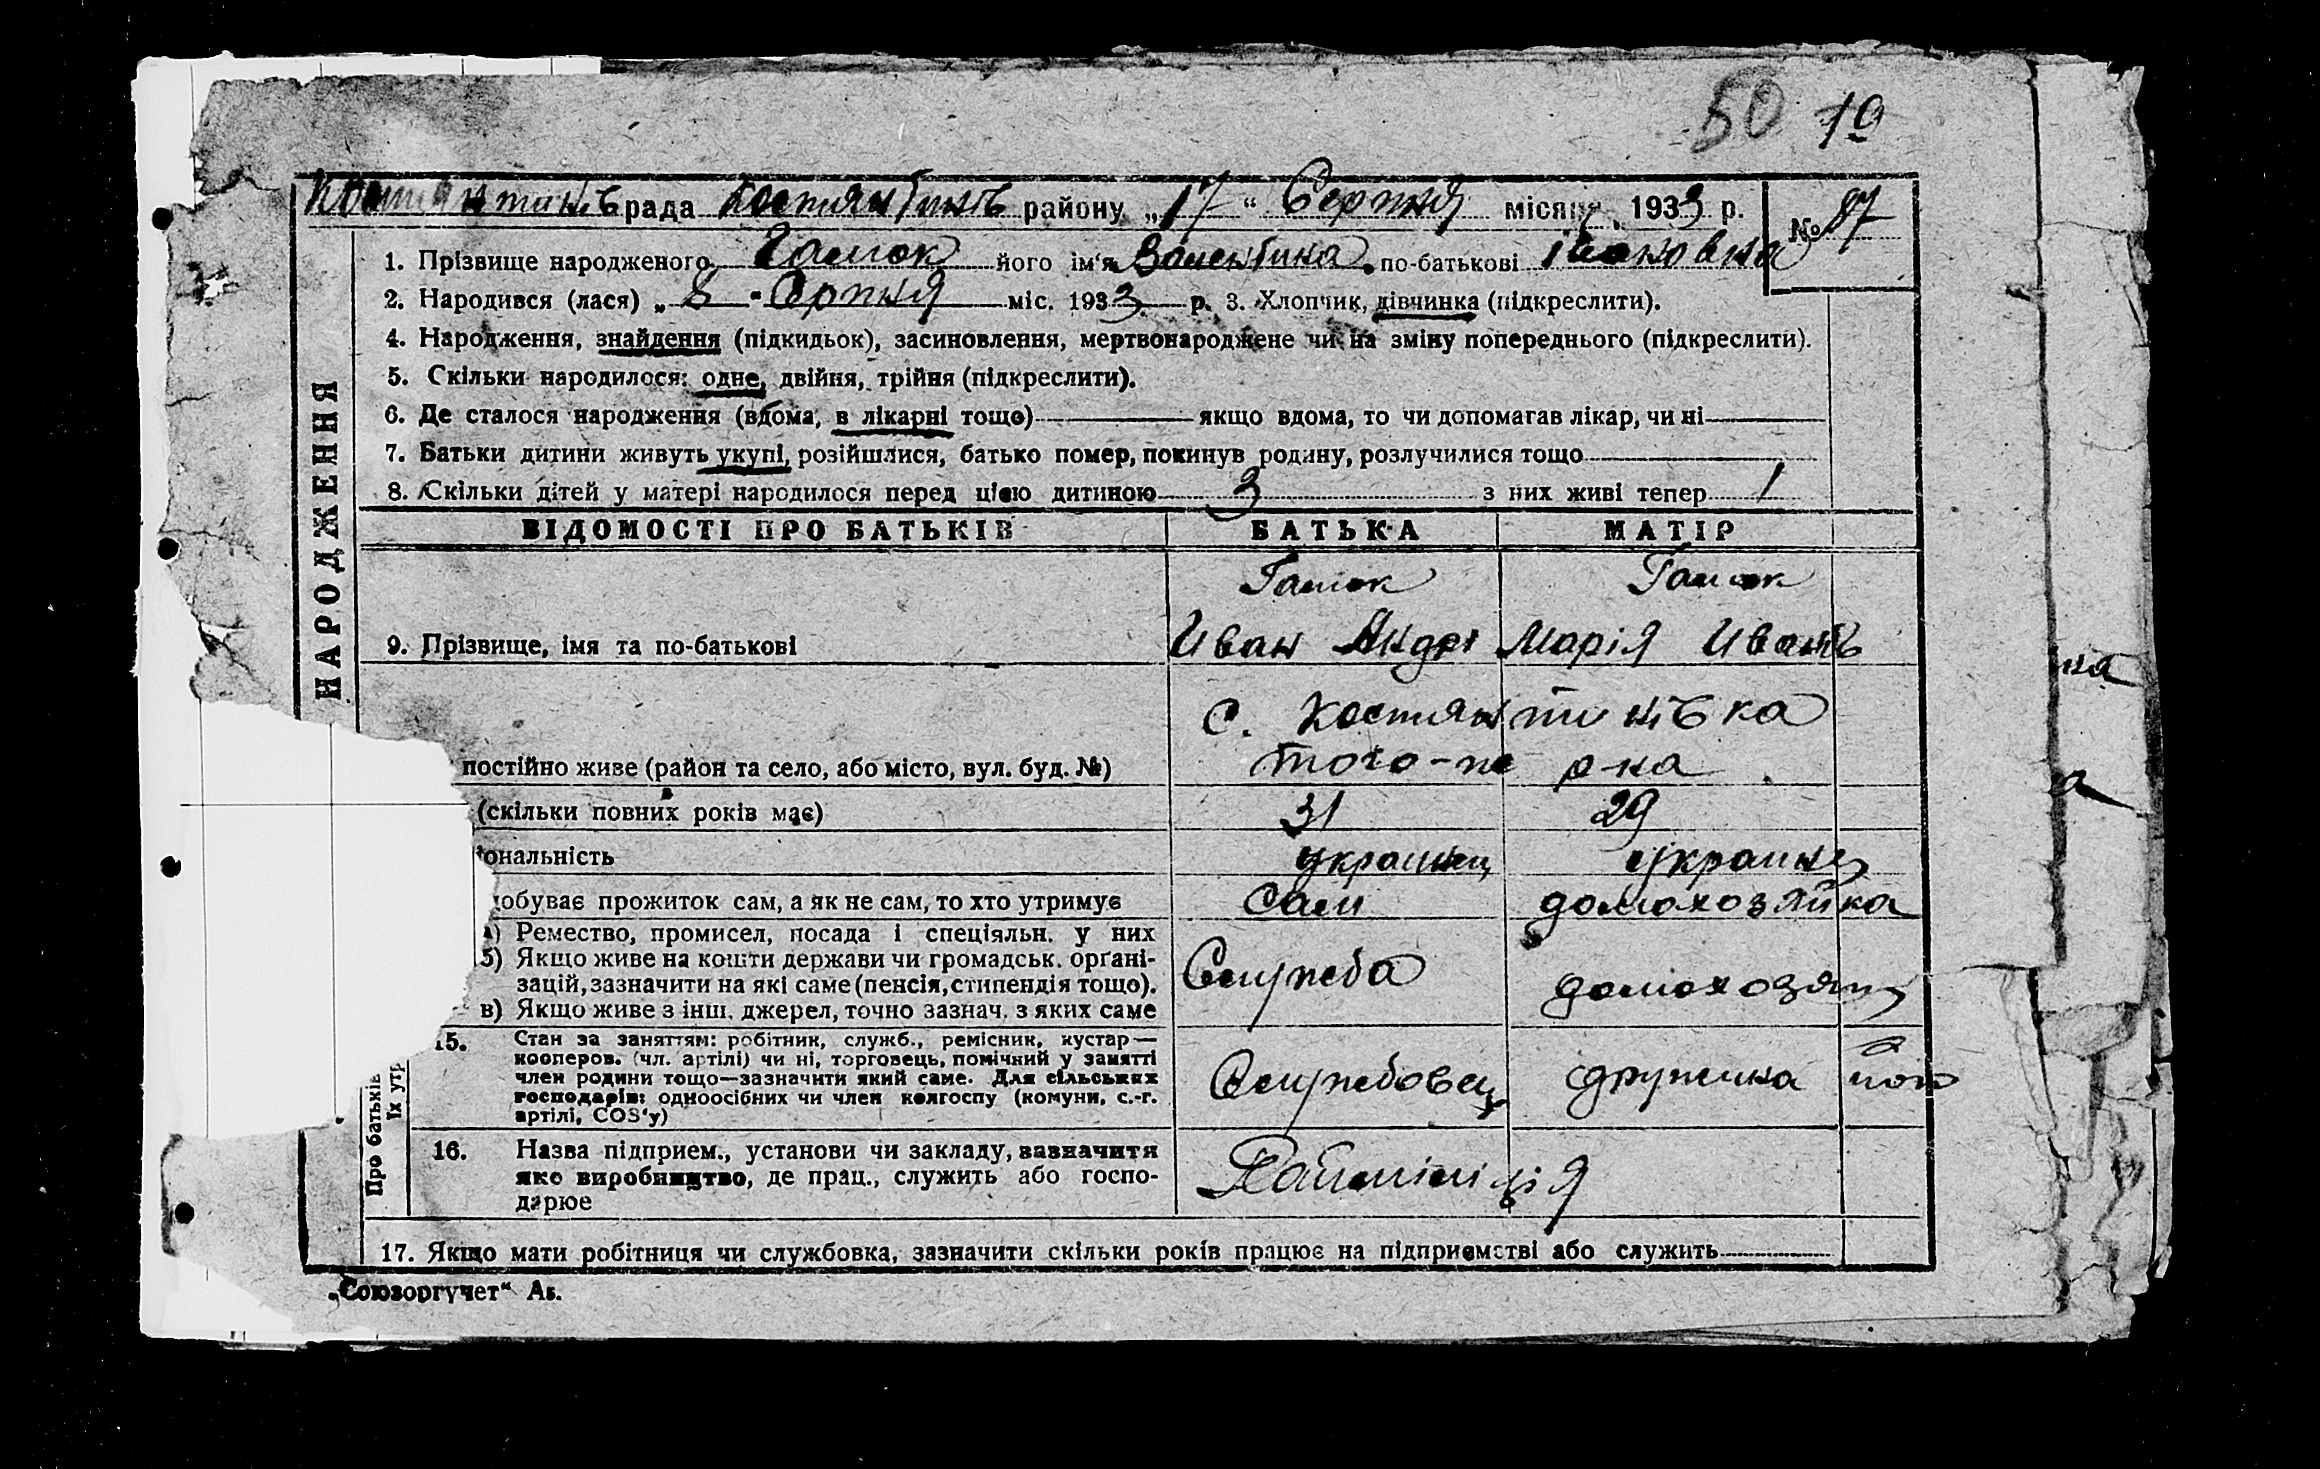 50 19
Костянтинів рада Костянтинів району „17“ Серпня місяця 1933 р. № 87
1. Прізвище народженого Гамок його ім'я Валентина по-батькові Івановна
2. Народився (лася) „8 - Серпня міс. 1933 р. 3. Хлопчик, дівчинка (підкреслити).
4. Народження, знайдення (підкидьок), засиновлення, мертвонароджене чи на зміну попереднього (підкреслити).
5. Скільки народилося: одне, двійня, трійня (підкреслити).
6. Де сталося народження (вдома, в лікарні тощо) якщо вдома, то чи допомагав лікар, чи ні
7. Батьки дитини живуть укупі, розійшлися, батько помер, покинув родину, розлучилися тощо
8. Скільки дітей у матері народилося перед цією дитиною 3 з них живі тепер 1
НАРОДЖЕННЯ
ВІДОМОСТІ ПРО БАТЬКІВ БАТЬКА МАТІР
Гамок Гамок
9. Прізвище, імя та по-батькові Иван Андр Марія Иванів
с. Костянтинівка
постійно живе (район та село, або місто, вул. буд. №) того-же р-на
(скільки повних років має) 31 29
іональність украинец украинец
добуває прожиток сам, а як не сам, то хто утримує Сам домохозяйка
а) Ремество, промисел, посада і спеціяльн. у них
б) Якщо живе на кошти держави чи громадськ. органі-
зацій, зазначити на які саме (пенсія, стипендія тощо). Служба домохозяйц
в) Якщо живе з інш. джерел, точно зазнач. з яких саме
15. Стан за заняттям: робітник, служб., ремісник, кустар—
кооперов. (чл. артілі) чи ні, торговець, помічний у занятті
член родини тощо—зазначити який саме. Для сільських
господарів: одноосібних чи член колгоспу (комуни, с.-г.
артілі, СОЗ'у) Службовец дружина
16. Назва підприєм., установи чи закладу, зазначити
яке виробництво, де прац., служить або госпо-
дарює Райміліція
Про батьків
їх утр
17. Якщо мати робітниця чи службовка, зазначити скільки років працює на підприємстві або служить
„Союзоргучет“ Ак.
ка
а